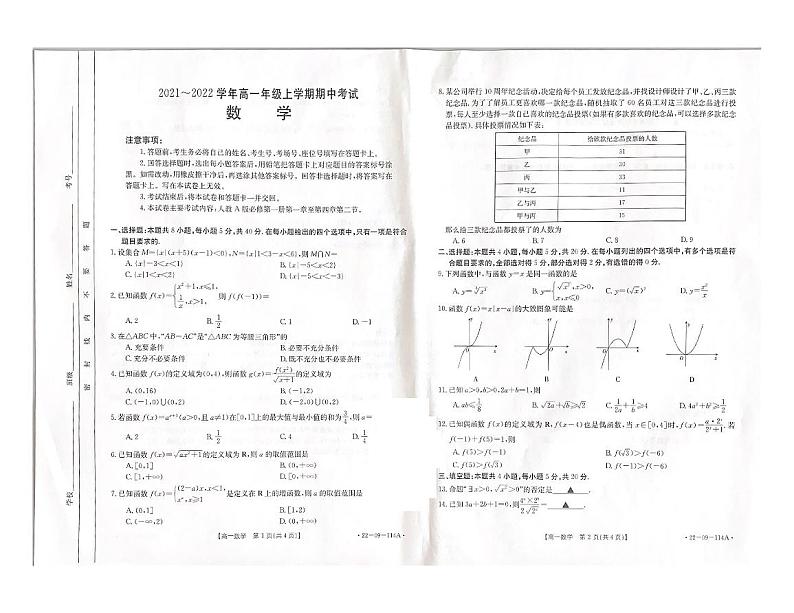 2021～2022学年高一年级上学期期中考试
数 学
注意事项：
1.答题前,考生务必将自己的姓名、考生号、考场号、座位号填写在答题卡上。
2.回答选择题时,选出每小题答案后,用铅笔把答题卡上对应题目的答案标号涂
黑。如需改动,用橡皮擦干净后,再选涂其他答案标号。回答非选择题时,将答案写在
答题卡上。写在本试卷上无效。
3.考试结束后,将本试卷和答题卡一并交回。
4.本试卷主要考试内容:人教A版必修第一册第一章至第四章第二节。
一、选择题:本题共8小题,每小题5分,共40分.在每小题给出的四个选项中,只有一项是符合
题目要求的.
1.设集合M={x|(x+5)(x-1)<0},N={x|1<3-x<6},则M∩N=
A.{x|-3<x<1} B.{x|-5<x<2}
C.{x|1<x<2} D.{x|-5<x<-3}
2.已知函数f(x)={x²+1,x≤1, 1/x,x>1, 则f(f(-1))=
A.2 B.1/2 C.1 D.-1
3.在△ABC中,“AB=AC”是“△ABC为等腰三角形”的
A.充要条件 B.必要不充分条件
C.充分不必要条件 D.既不充分也不必要条件
4.已知函数f(x)的定义域为(0,4),则函数g(x)=f(x²)/√(x+1)的定义域为
A.(0,16) B.(-1,2)
C.(-1,0)∪(0,2) D.(-2,0)∪(0,2)
5.若函数f(x)=aˣ⁺¹(a>0,且a≠1)在[0,1]上的最大值与最小值的和为3/4,则a=
A.2 B.1/2 C.4 D.1/4
6.已知函数f(x)=√(ax²+1)的定义域为R,则a的取值范围是
A.[0,1] B.(0,+∞)
C.[1,+∞) D.[0,+∞)
7.已知函数f(x)={(2-a)x,x<1, aˣ,x≥1 是定义在R上的增函数,则a的取值范围是
A.(0,1] B.[1,2)
C.(-∞,2) D.(0,+∞)
【高一数学 第1页(共4页)】 ·22-09-114A·
8.某公司举行10周年纪念活动,决定给每个员工发放纪念品,并找设计师设计了甲、乙、丙三款
纪念品.为了了解员工更喜欢哪一款纪念品,随机抽取了60名员工对这三款纪念品进行投
票,每人至少选择一款自己喜欢的纪念品投票(如果有多款喜欢的纪念品,可以选择多款纪念
品投票).具体投票情况如下表:
纪念品 给该款纪念品投票的人数
甲 31
乙 30
丙 33
甲与乙 11
乙与丙 17
甲与丙 15
那么给三款纪念品都投票了的人数为
A.6 B.7 C.8 D.9
二、选择题:本题共4小题,每小题5分,共20分.在每小题列出的四个选项中,有多个选项是符
合题目要求的,全部选对得5分,部分选对得2分,有选错的得0分.
9.下列函数中,与函数y=x是同一函数的是
A.y=∛x³ B.y={√x²,x>0, x,x≤0 C.y=(√x)² D.y=x²/x
10.函数f(x)=x|x-a|的大致图象可能是
A B C D
11.已知a>0,b>0,2a+b=1,则
A.ab≤1/8 B.√2a+√b≥√2 C.1/2a+1/b≥4 D.4a²+b²≥1/2
12.已知偶函数f(x)的定义域为R,f(x-4)也是偶函数,当x∈[0,4]时,f(x)=a·2ˣ/(2ˣ+1).若
f(-1)+f(5)=1,则
A.f(5)>f(-1) B.f(√3)>f(-6)
C.f(5)>f(√3) D.f(-1)>f(-6)
三、填空题:本题共4小题,每小题5分,共20分.
13.命题“∃x>0,√x²>0”的否定是 ▲ .
14.已知3a+2b+1=0,则4ᵃ×2ᵇ/2√2ᵃ= ▲ .
【高一数学 第2页(共4页)】 ·22-09-114A·
学校
班级
姓名
考号
密 封 线 内 不 要 答 题